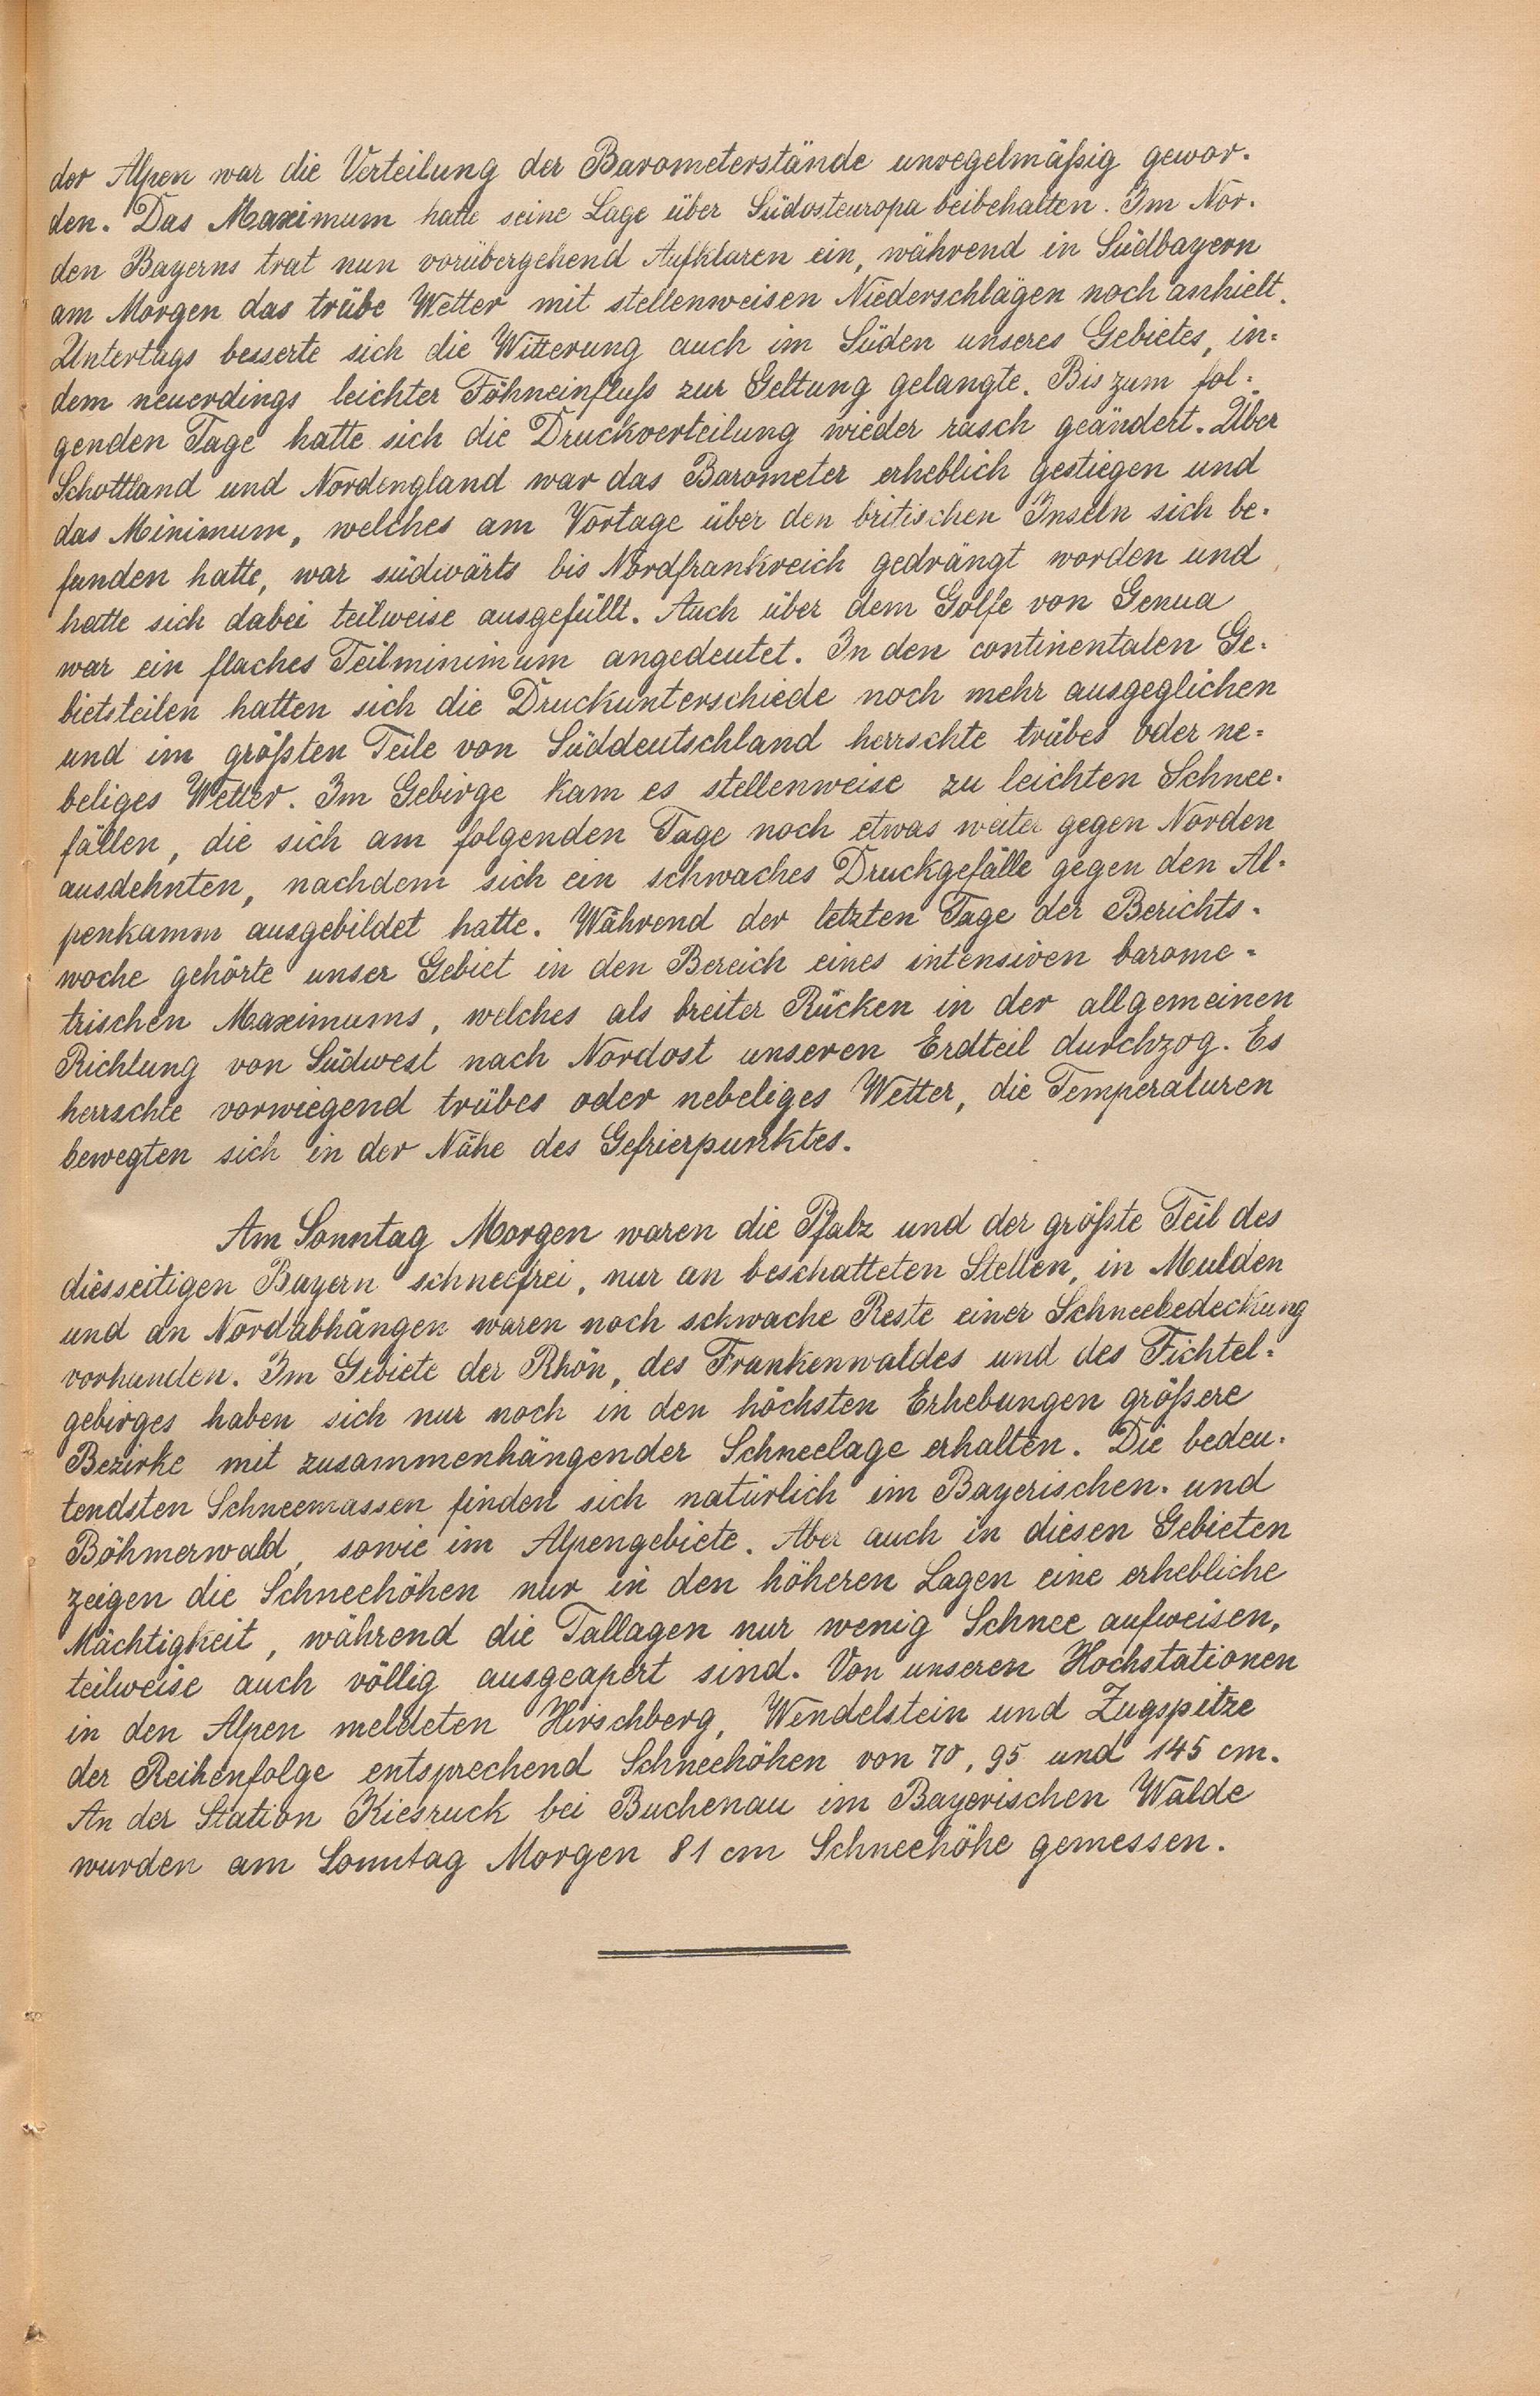 der Alpen war die Verteilung der Barometerstände unregelmäßig gewor-
den. Das Maximum hatte seine Lage über Südosteuropa beibehalten. Im Nor-
den Bayerns trat nun vorübergehend Aufklaren ein, während in Südbayern
am Morgen das trübe Wetter mit stellenweisen Niederschlägen noch anhielt.
Untertags besserte sich die Witterung auch im Süden unseres Gebietes, in-
dem neuerdings leichter Föhneinfluß zur Geltung gelangte. Bis zum fol-
genden Tage hatte sich die Druckverteilung wieder rasch geändert. Über
Schottland und Nordengland war das Barometer erheblich gestiegen und
das Minimum, welches am Vortage über den britischen Inseln sich be-
funden hatte, war südwärts bis Nordfrankreich gedrängt worden und
hatte sich dabei teilweise ausgefüllt. Auch über dem Golfe von Genua
war ein flaches Teilminimum angedeutet. In den continentalen Ge-
bietsteilen hatten sich die Druckunterschiede noch mehr ausgeglichen
und im größten Teile von Süddeutschland herrschte trübes oder ne-
beliges Wetter. Im Gebirge kam es stellenweise zu leichten Schnee-
fällen, die sich am folgenden Tage noch etwas weiter gegen Norden
ausdehnten, nachdem sich ein schwaches Druckgefälle gegen den Al-
penkamm ausgebildet hatte. Während der letzten Tage der Berichts-
woche gehörte unser Gebiet in den Bereich eines intensiven barome-
trischen Maximums, welches als breiter Rücken in der allgemeinen
Richtung von Südwest nach Nordost unseren Erdteil durchzog. Es
herrschte vorwiegend trübes oder nebeliges Wetter, die Temperaturen
bewegten sich in der Nähe des Gefrierpunktes.
Am Sonntag Morgen waren die Pfalz und der größte Teil des
diesseitigen Bayern schneefrei, nur an beschatteten Stellen, in Mulden
und an Nordabhängen waren noch schwache Reste einer Schneebedeckung
vorhanden. Im Gebiete der Rhön, des Frankenwaldes und des Fichtel-
gebirges haben sich nur noch in den höchsten Erhebungen größere
Bezirke mit zusammenhängender Schneelage erhalten. Die bedeu-
tendsten Schneemassen finden sich natürlich im Bayerischen- und
Böhmerwald, sowie im Alpengebiete. Aber auch in diesen Gebieten
zeigen die Schneehöhen nur in den höheren Lagen eine erhebliche
Mächtigkeit, während die Tallagen nur wenig Schnee aufweisen,
teilweise auch völlig ausgeapert sind. Von unseren Hochstationen
in den Alpen meldeten Hirschberg, Wendelstein und Zugspitze
der Reihenfolge entsprechend Schneehöhen von 70, 95 und 145 cm.
An der Station Kiesruck bei Buchenau im Bayerischen Walde
wurden am Sonntag Morgen 81 cm Schneehöhe gemessen.